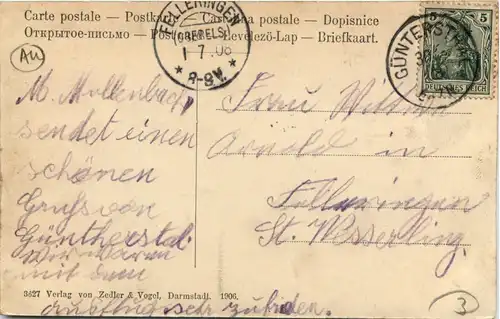 Carte postale – Postkarte – Cartolina postale – Dopisnice
Открытое-письмо – Levelezö-Lap – Briefkaart.
FELLERINGEN
(OBERELS.)
1 7 06
* 8-9V. *
GÜNTERST
5
DEUTSCHES REICH
AU
M. Mollenbach
sendet einen
schönen
Gruss von
Güntherstal
Wir waren
mit dem
Ausflug sehr zufrieden.
Frau
Arnold in
Felleringen
St. Wesserling
3827 Verlag von Zedler & Vogel, Darmstadt, 1906.
3